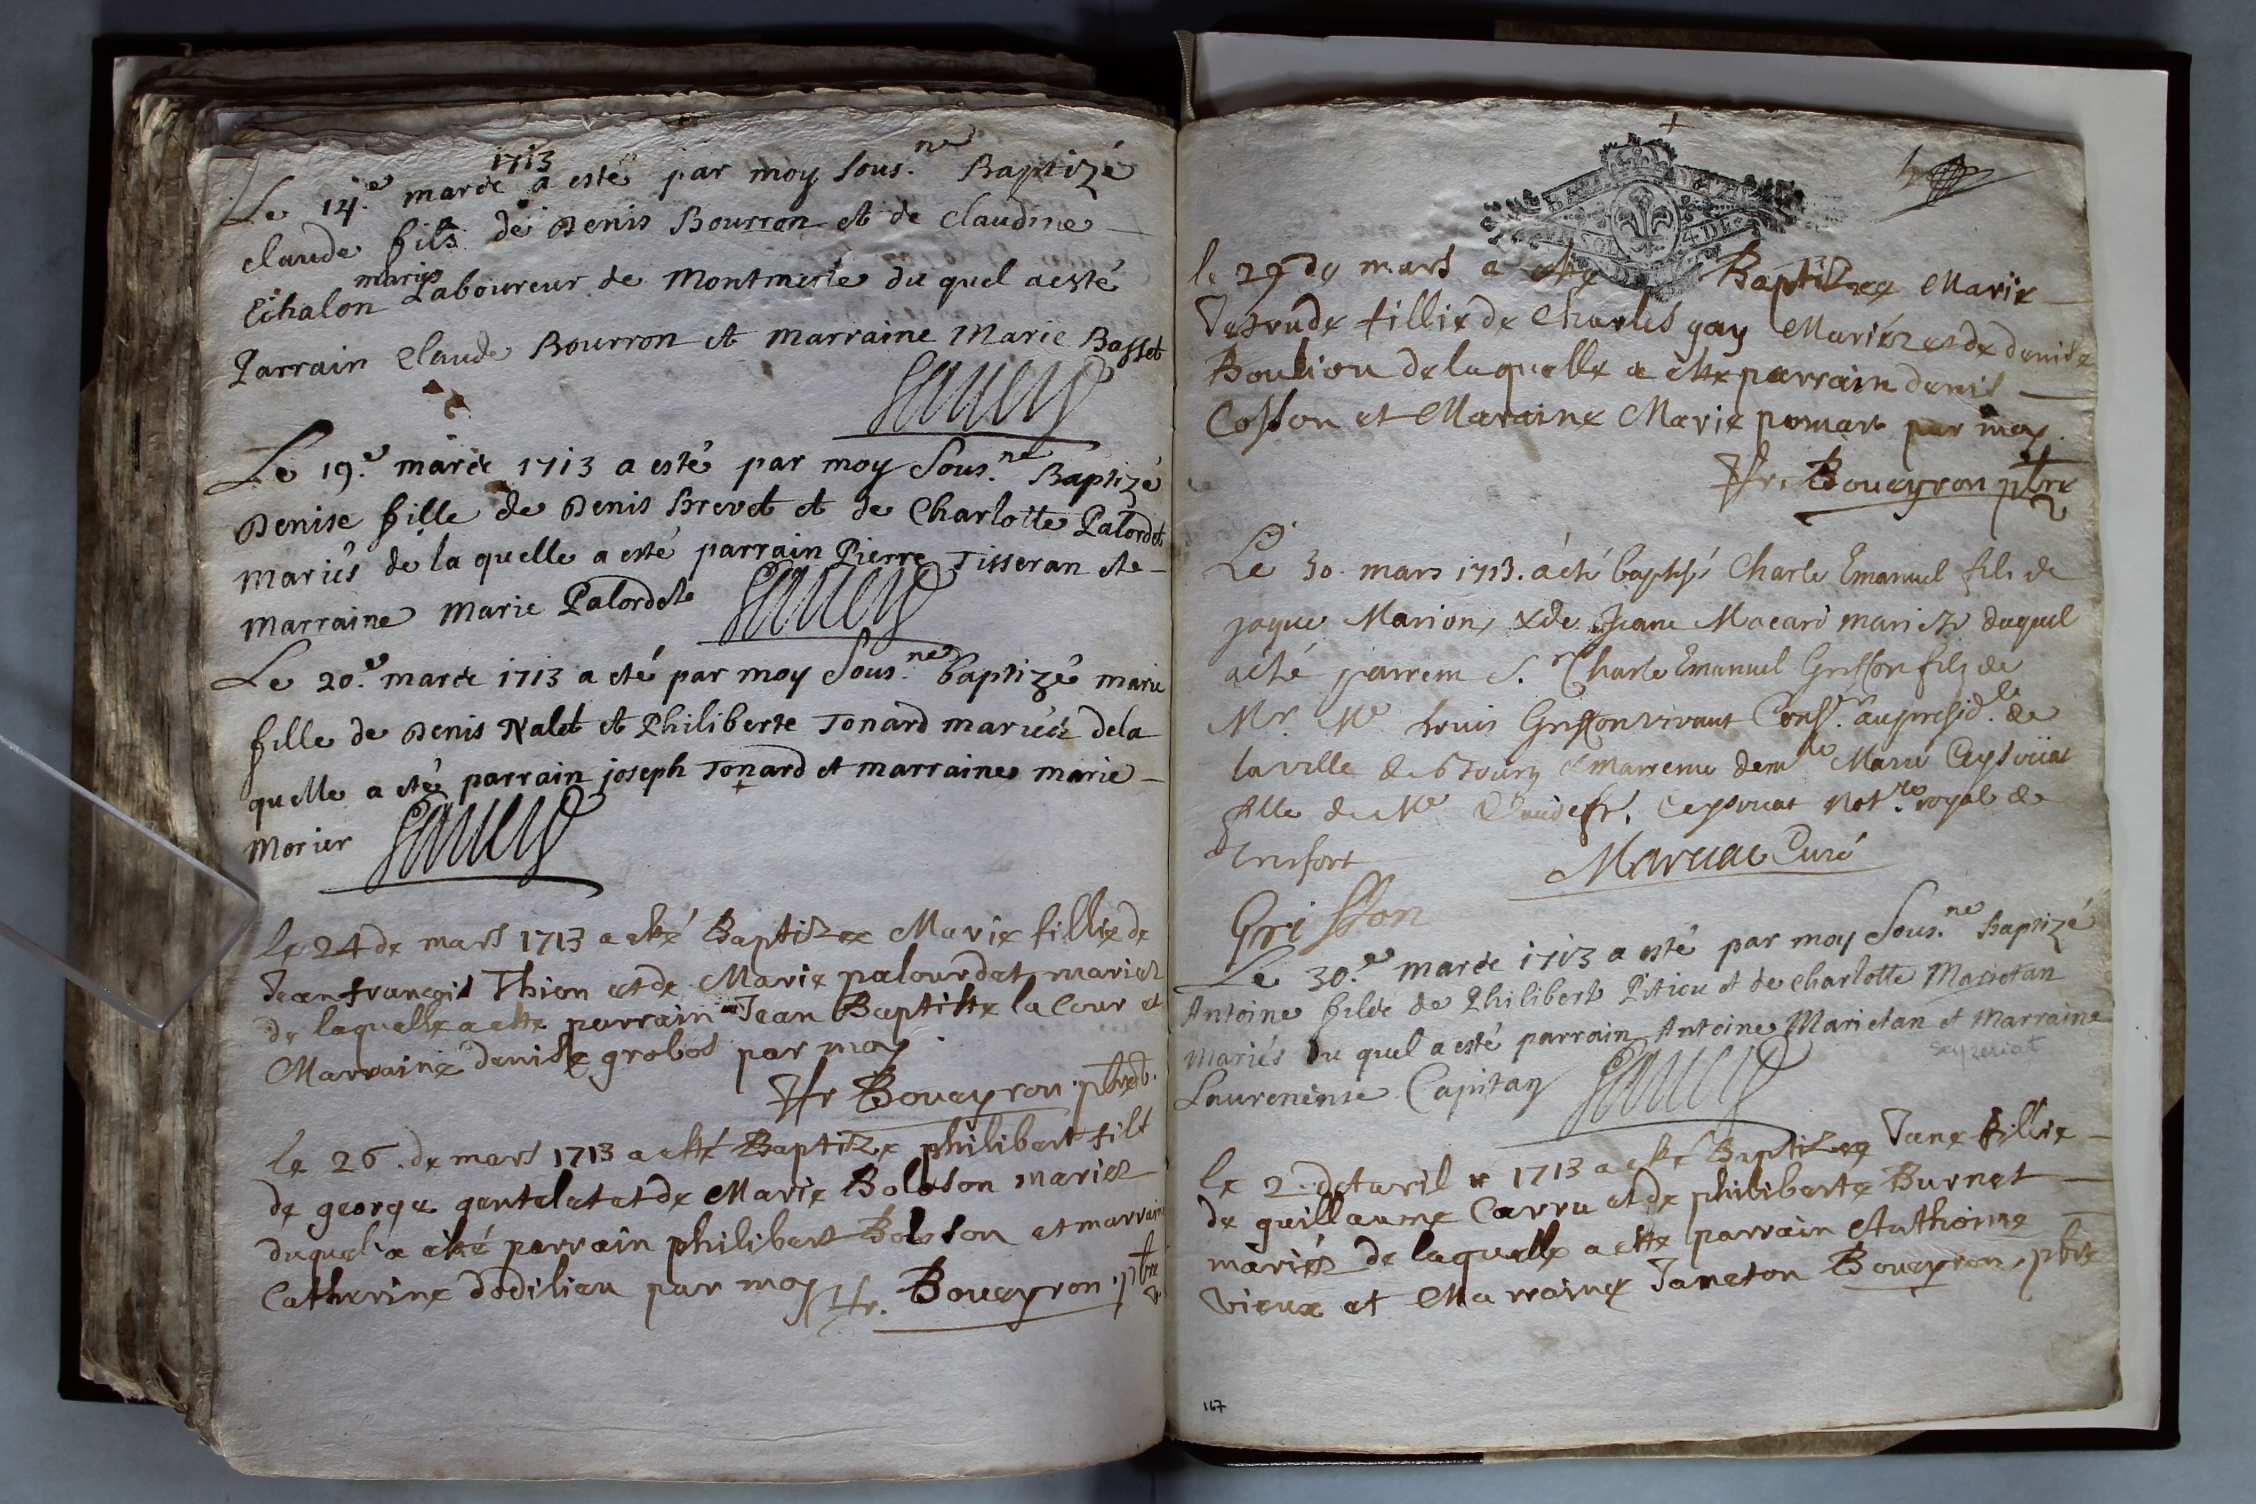 1713
Le 14.e marce a esté par moy sous.ne Baptizé
claude fils de Denis Bourron et de Claudine
mariés
Echalon Laboureur de Montmerle du quel a esté
Parrain Claude Bourron et marraine Marie Basset
Le 19.e marce 1713 a esté par moy Sous.ne Baptizé
Denise fille de Denis Brevet et de Charlotte Palordet
mariés de la quelle a esté parrain Pierre Tisseran et
marraine Marie Palordet
Le 20.e marce 1713 a eté par moy Sous.ne baptizé marie
fille de Denis Nalet et Philiberte Tonard mariés de la
quelle a eté parrain joseph Tonard et marraine marie
Morier
le 24 de mars 1713 a esté Baptizee Marie fillie de
Jean françois Thion et de Marie palourdet mariez
de laquelle a este parrain Jean Baptiste la Cour et
Marraine denise grobos par moy
Boueyron
le 26. de mars 1713 a esté Baptize philibert fils
de george gentelet et de Marie Boloson mariez
duquel a esté parrain philibert Boloson et marraine
Catherine dodilieu par moy Boueyron ptre
le 29 de mars a este Baptizee Marie
fillie de Charles gay Mariez et de denise
Bouliou de laquelle a este parrain denis
Cosson et Maraine Marie pomar par moy
Boueyron ptre
Le 30. mars 1713. a été baptisé Charle Emanuel fils de
jaque Marion, & de Jeane Macard mariez duquel
a été parrein S.r Charle Emanuel Grisson fils de
Mr. Me Louis Grisson vivant Cons.r au presid.le de
la ville de Bourg & marreine dem.lle Marie Ceyseriat
fille de Me Ceyseriat Not.re royal de
Treffort
Curé
Grisson
Le 30.e marce 1713 a esté par moy Sous.ne Baptizé
Antoine filce de Philibert Pitiou et de charlotte Marietan
Mariés du quel a esté parrain Antoine Marietan et Marraine
Seyzeriat
Laurencine Capitan
le 2. d'avril 1713 a esté Baptizee Jane fillie
de guillaume Carru et de philiberte Burnet
mariés de laquelle a este parrain Anthoine
vieux et Marraine Janeton Boueyron, ptre
167